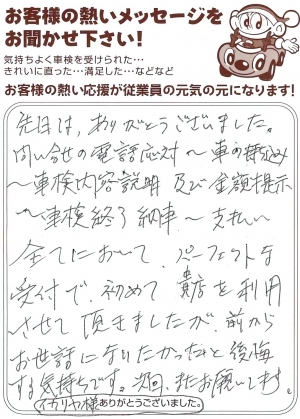 お客様の熱いメッセージを
お聞かせ下さい!
気持ちよく車検を受けられた…
きれいに直った…満足した…などなど
お客様の熱い応援が従業員の元気の元になります!
先日は、ありがとうございました。
問い合せの電話応対~車の持込み
~車検内容説明 及び 金額提示
~車検終了 納車~支払い
全てにおいて、パーフェクトな
受付で、初めて 貴店を利用
させて頂きましたが、前から
お世話になりたかったと後悔
する気持ちです。次回、またお願いします。
イカリヤ様 ありがとうございました。